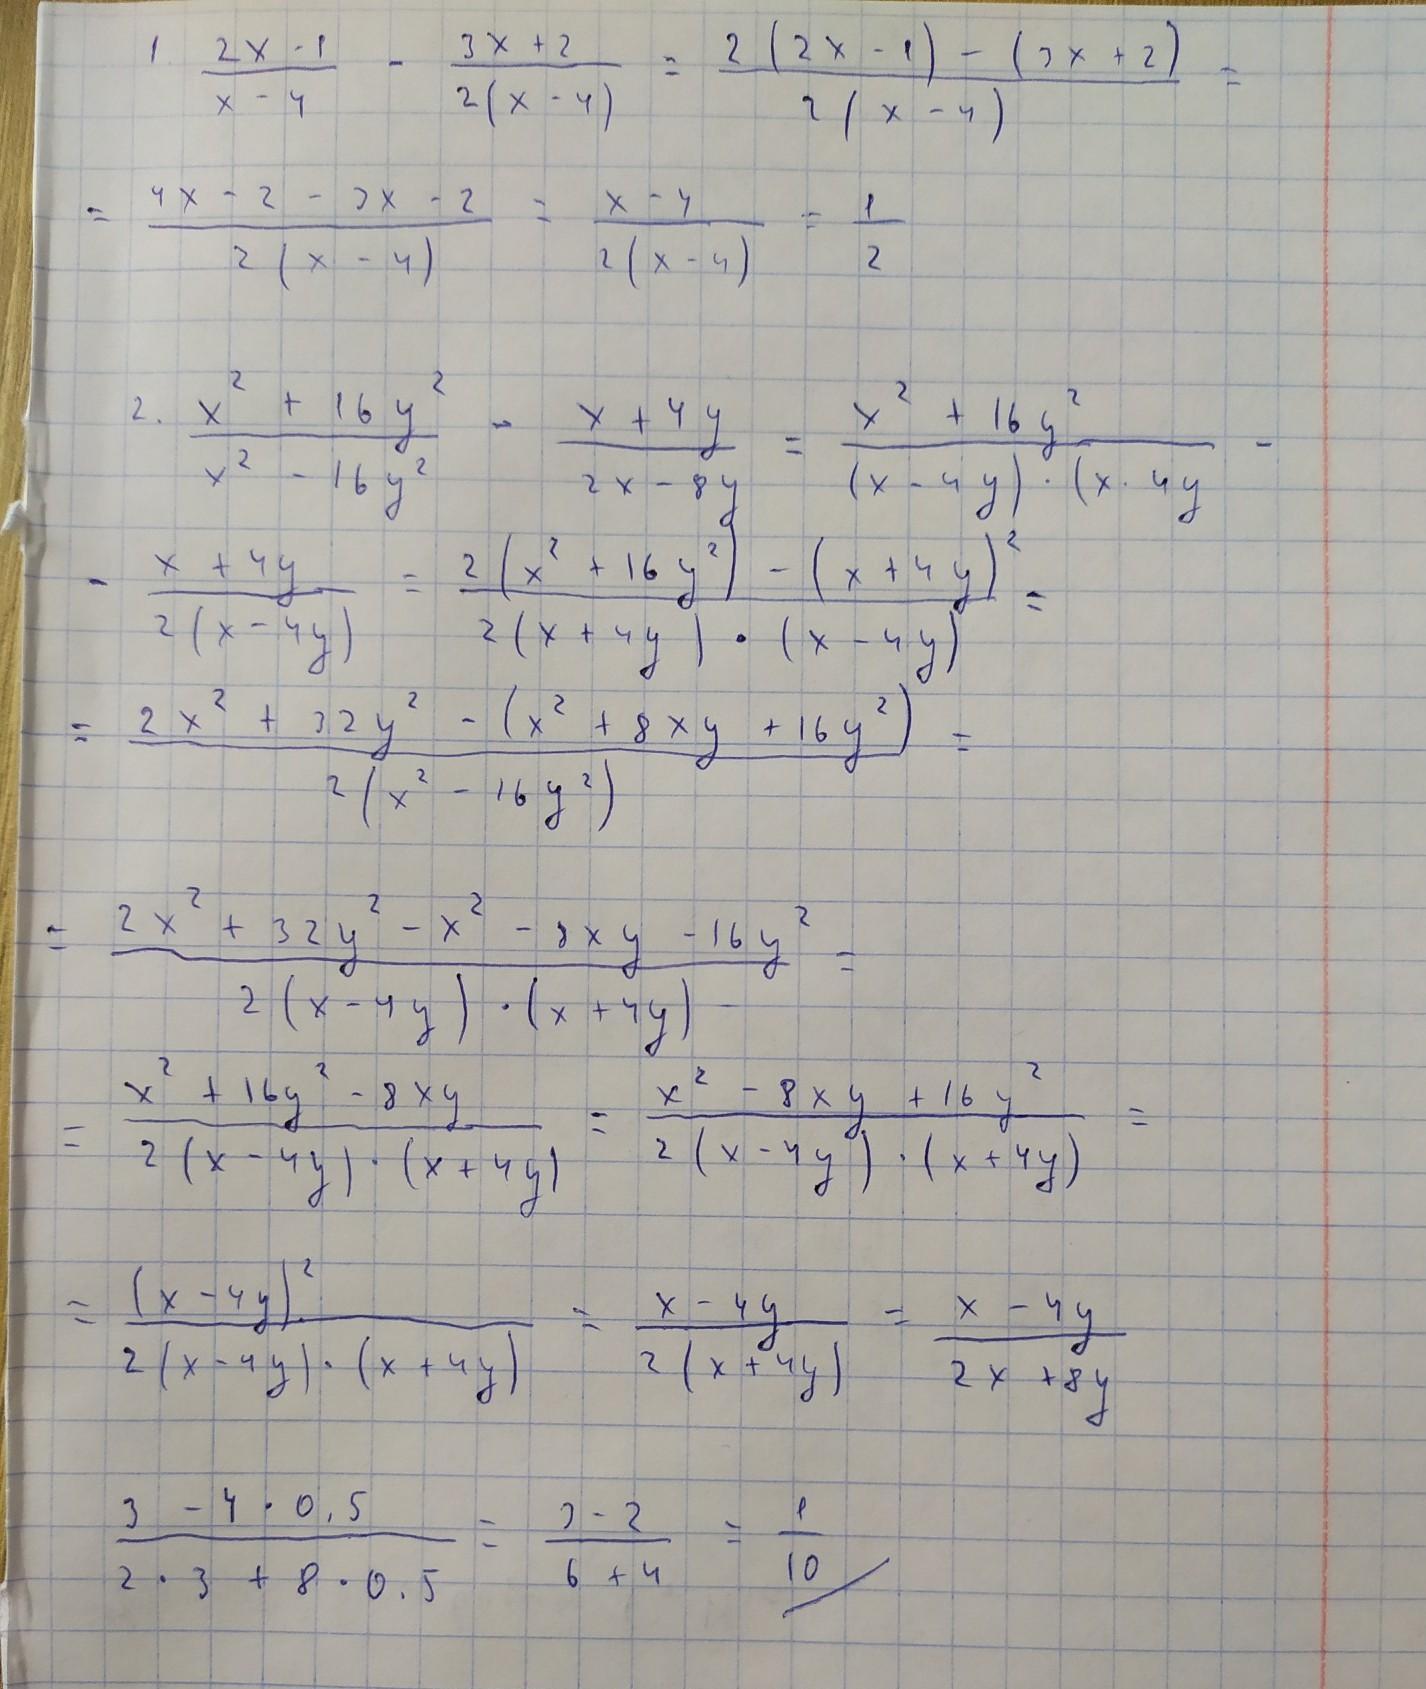 1. (2x - 1)/(x - 4) - (3x + 2)/(2(x - 4)) = (2(2x - 1) - (3x + 2))/(2(x - 4)) =
= (4x - 2 - 3x - 2)/(2(x - 4)) = (x - 4)/(2(x - 4)) = 1/2
2. (x² + 16y²)/(x² - 16y²) - (x + 4y)/(2x - 8y) = (x² + 16y²)/((x - 4y) · (x · 4y) -
- (x + 4y)/(2(x - 4y)) = (2(x² + 16y²) - (x + 4y)²)/(2(x + 4y) · (x - 4y)) =
= (2x² + 32y² - (x² + 8xy + 16y²))/(2(x² - 16y²)) =
= (2x² + 32y² - x² - 8xy - 16y²)/(2(x - 4y) · (x + 4y)) =
= (x² + 16y² - 8xy)/(2(x - 4y) · (x + 4y)) = (x² - 8xy + 16y²)/(2(x - 4y) · (x + 4y)) =
= (x - 4y)²/(2(x - 4y) · (x + 4y)) = (x - 4y)/(2(x + 4y)) = (x - 4y)/(2x + 8y)
(3 - 4 · 0,5)/(2 · 3 + 8 · 0.5) = (3 - 2)/(6 + 4) = 1/10